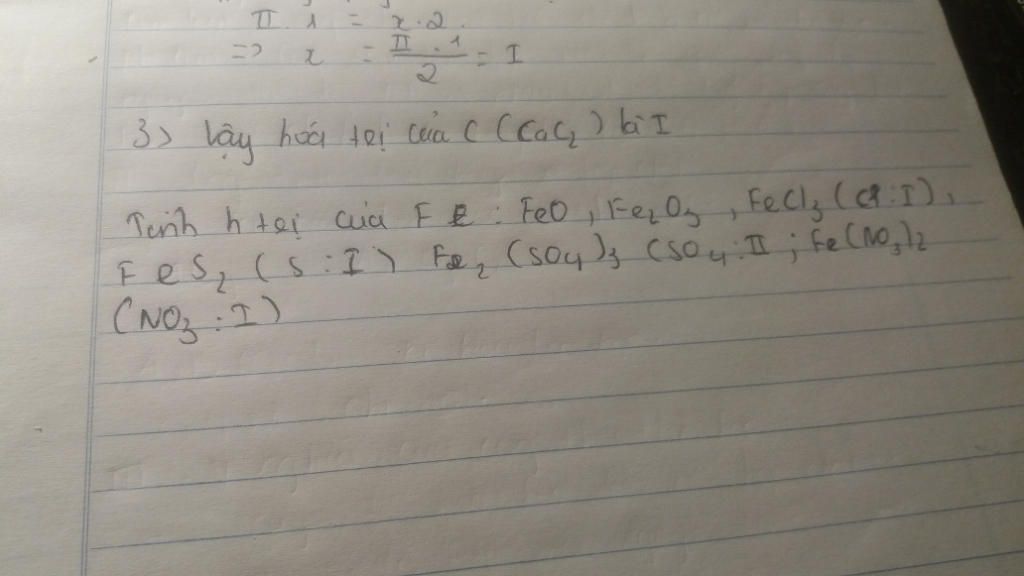 II. 1 = x. 2.
=> x = II . 1 / 2 = I
3> Vậy hoá trị của C (CaC2) là I
Tính h trị của Fe : FeO, Fe2O3, FeCl3 (Cl : I),
FeS2 (S : I) Fe2(SO4)3 (SO4 : II ; Fe(NO3)2
(NO3 : I)